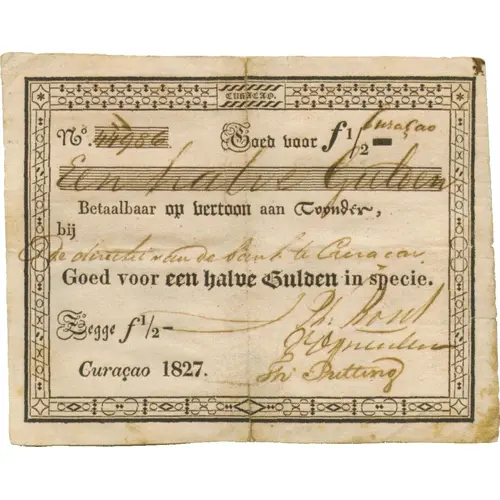 CURAÇAO.
Nº Goed voor f 1/2 — Curaçao
Een halve Gulden
Betaalbaar op vertoon aan Toonder,
bij
De directie van de bank te Curaçao
Goed voor een halve Gulden in specie.
Zegge f 1/2 —
Curaçao 1827.